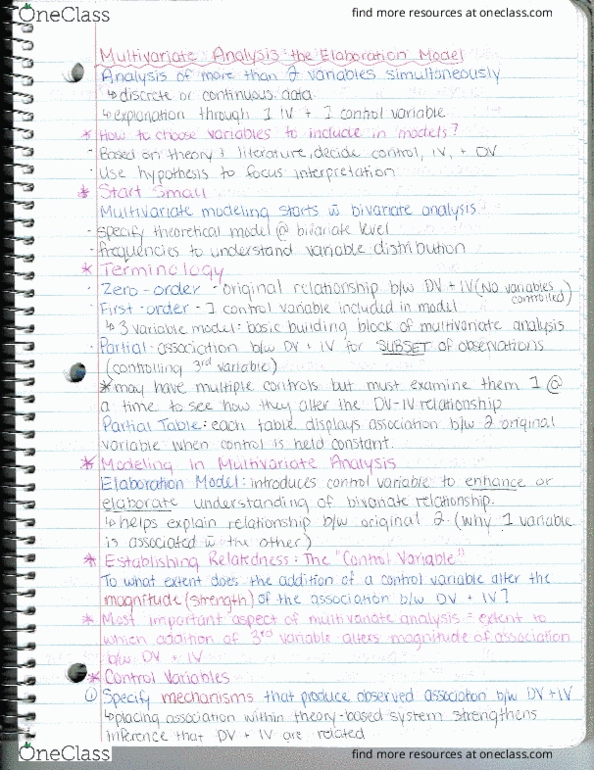 OneClass
find more resources at oneclass.com
Multivariate Analysis: the Elaboration Model
Analysis of more than 2 variables simultaneously
↳ discrete or continuous data
↳ explanation through 1 IV + 1 control variable
* How to choose variables to include in models?
- Based on theory + literature, decide control, IV, + DV
- Use hypothesis to focus interpretation
* Start Small
Multivariate modeling starts w bivariate analysis
- specify theoretical model @ bivariate level
- frequencies to understand variable distribution
* Terminology
· Zero-order - original relationship b/w DV + IV (NO variables controlled)
· First-order - 1 control variable included in model
↳ 3 variable model: basic building block of multivariate analysis
· Partial - association b/w DV + IV for SUBSET of observations
(controlling 3rd variable)
* may have multiple controls but must examine them 1 @
a time to see how they alter the DV-IV relationship
Partial Table: each table displays association b/w 2 original
variable when control is held constant.
* Modeling in Multivariate Analysis
Elaboration Model: introduces control variable to enhance or
elaborate understanding of bivariate relationship.
↳ helps explain relationship b/w original 2 (why 1 variable
is associated w the other)
* Establishing Relatedness: The "Control Variable"
To what extent does the addition of a control variable alter the
magnitude (strength) of the association b/w DV + IV?
* Most important aspect of multivariate analysis = extent to
which addition of 3rd variable alters magnitude of association
b/w DV + IV
* Control Variables
① Specify mechanisms that produce observed association b/w DV + IV
↳ placing association within theory-based system strengthens
inference that DV + IV are related
OneClass
find more resources at oneclass.com